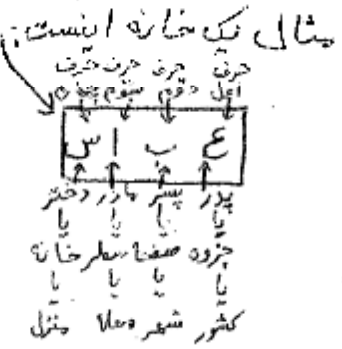 مثالی یک خانه اینست:
حرف حرف حرف حرف
اول دوم سوم چهارم
ع ب ا س
پدر پسر مادر دختر
یا یا یا یا
جزوه صفحا سطر خانه
یا یا یا یا
کشور شهر محلا منزل